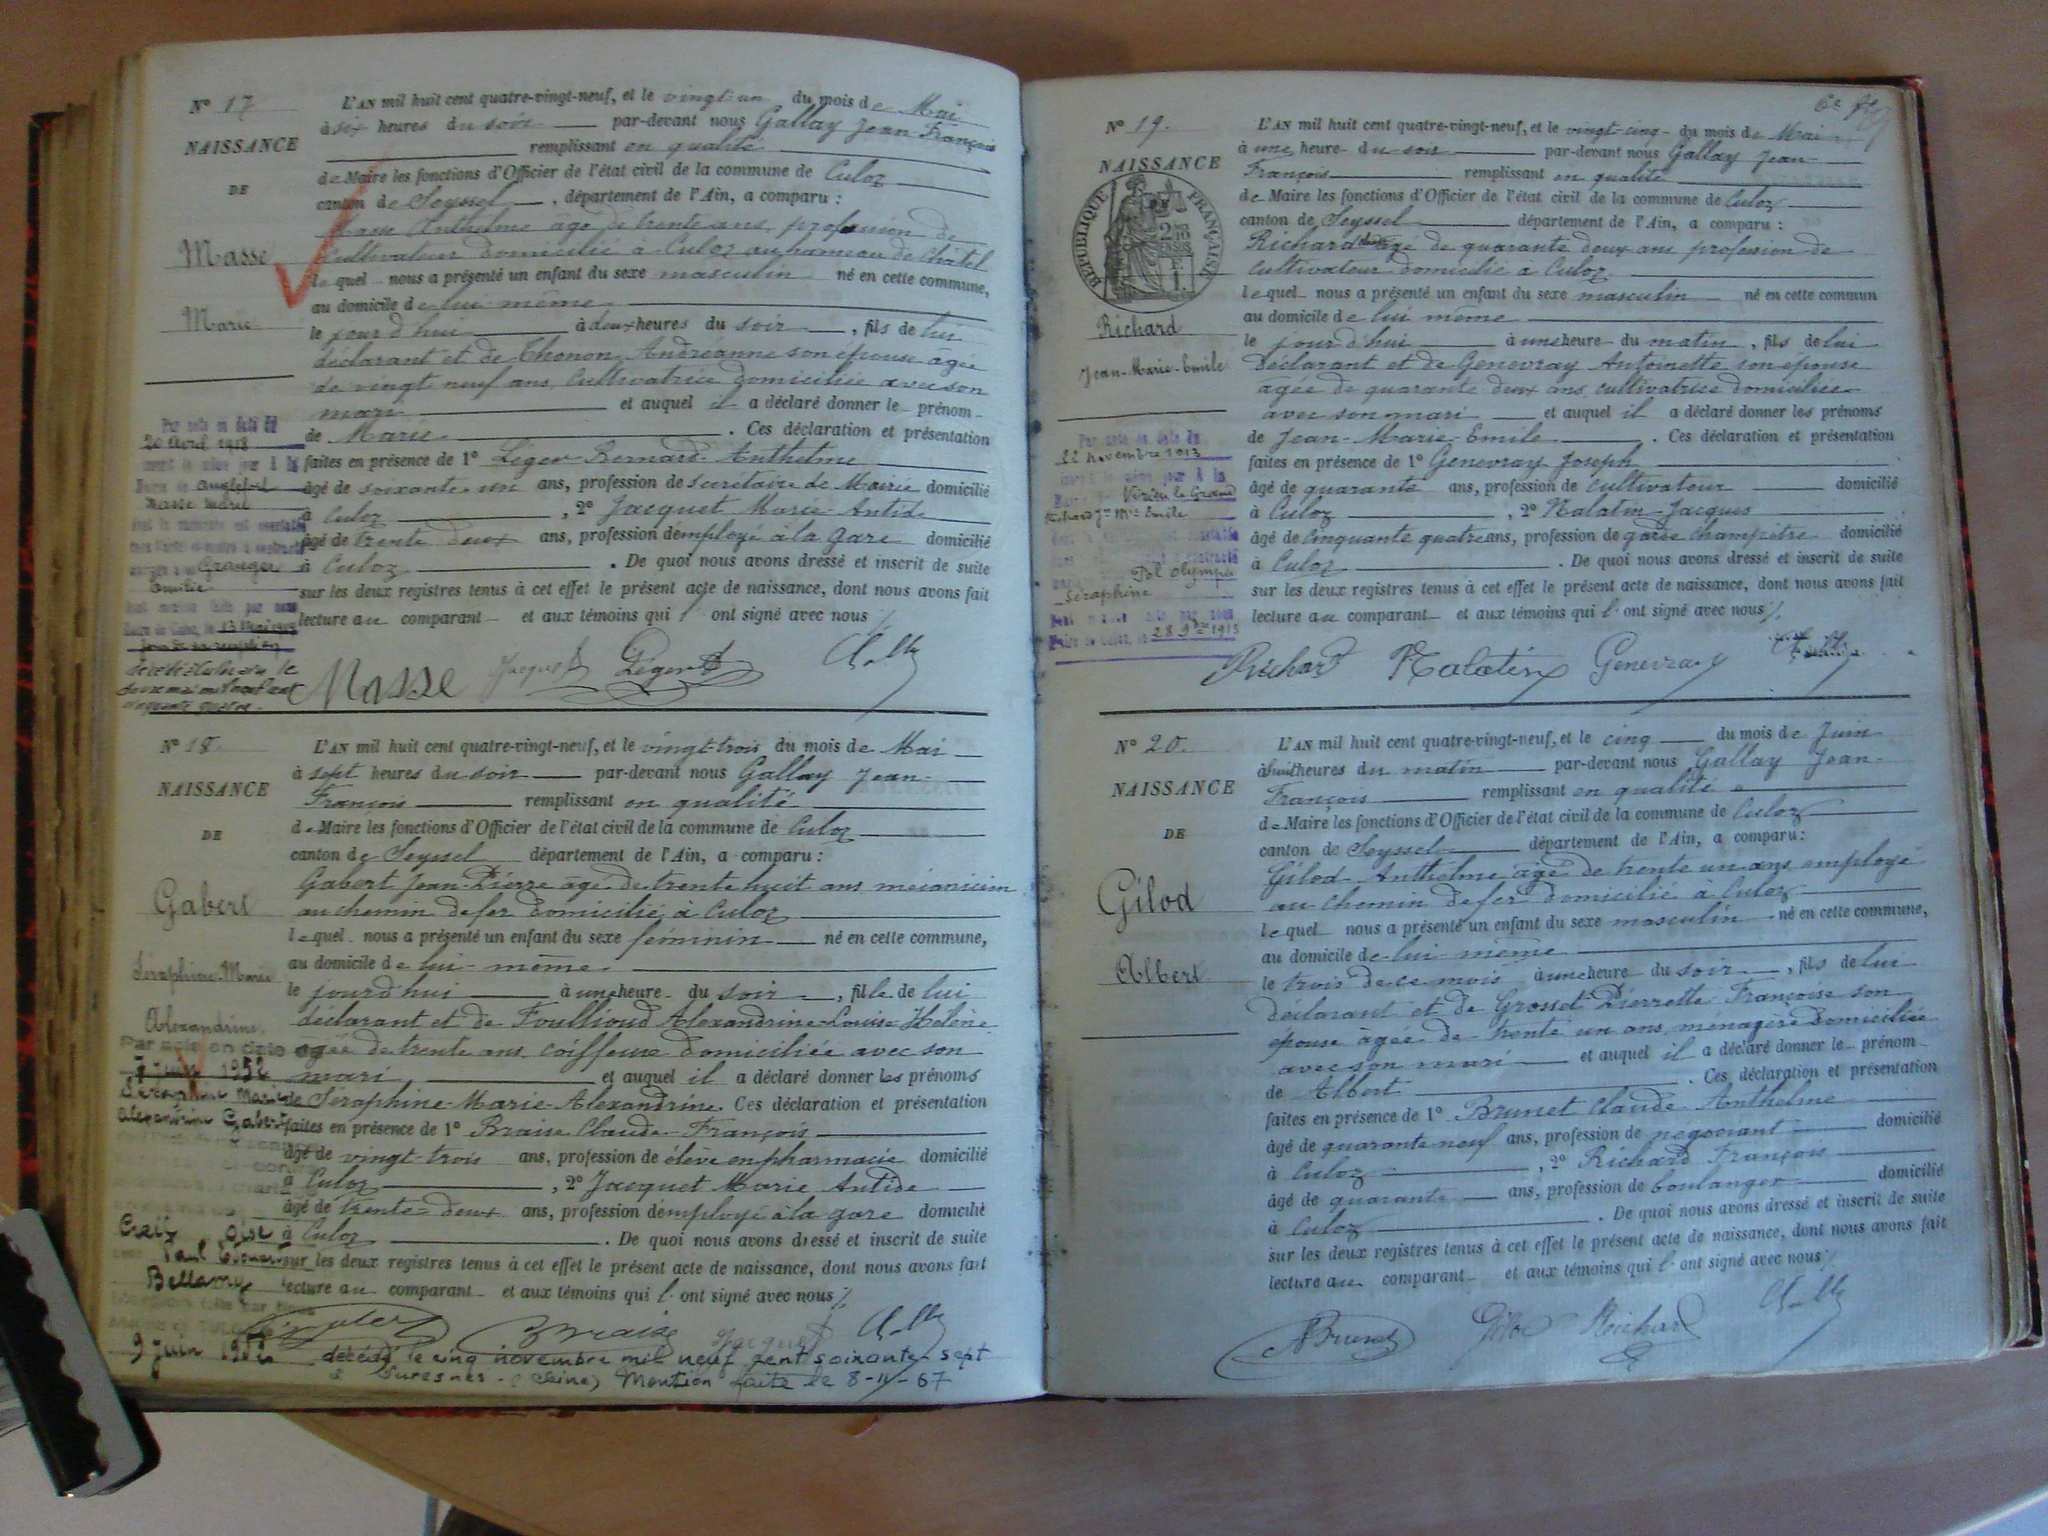 N° 17
NAISSANCE
DE
Masse
Marie
L'AN mil huit cent quatre-vingt-neuf, et le vingt un du mois de Mai
à six heures du soir par-devant nous Gallay Jean François
remplissant en qualité
de Maire les fonctions d'Officier de l'état civil de la commune de Culoz
canton de Seyssel, département de l'Ain, a comparu :
Masse Anthelme âgé de trente ans, profession de
Cultivateur domicilié à Culoz au hameau de Châtel
lequel nous a présenté un enfant du sexe masculin né en cette commune,
au domicile de lui même
le jourd'hui à deux heures du soir, fils de lui
déclarant et de Thonon Andréanne son épouse âgée
de vingt neuf ans, Cultivatrice domiciliée avec son
mari et auquel il a déclaré donner le prénom
de Marie. Ces déclaration et présentation
faites en présence de 1° Léger Bernard Anthelme
âgé de soixante-un ans, profession de secrétaire de Mairie domicilié
à Culoz, 2° Jacquet Marie Antide
âgé de trente deux ans, profession d'employé à la gare domicilié
à Culoz. De quoi nous avons dressé et inscrit de suite
sur les deux registres tenus à cet effet le présent acte de naissance, dont nous avons fait
lecture au comparant et aux témoins qui ont signé avec nous
Par acte en date du
20 avril 1918
Anglefort
Masse Marie
Granger
Emilie
13 Mai 1918
Masse Jacquet Léger
N° 18.
NAISSANCE
DE
Gabert
Séraphine-Marie
Alexandrine.
L'AN mil huit cent quatre-vingt-neuf, et le vingt-trois du mois de Mai
à sept heures du soir par-devant nous Gallay Jean-
François remplissant en qualité
de Maire les fonctions d'Officier de l'état civil de la commune de Culoz
canton de Seyssel département de l'Ain, a comparu :
Gabert Jean-Pierre âgé de trente huit ans mécanicien
au chemin de fer domicilié à Culoz
lequel nous a présenté un enfant du sexe féminin né en cette commune,
au domicile de lui-même
le jourd'hui à une heure du soir, fille de lui
déclarant et de Foullioud Alexandrine-Louise-Hélène
âgée de trente ans, coiffeuse domiciliée avec son
mari et auquel il a déclaré donner les prénoms
de Séraphine-Marie-Alexandrine. Ces déclaration et présentation
faites en présence de 1° Braise Claude-François
âgé de vingt-trois ans, profession de élève en pharmacie domicilié
à Culoz, 2° Jacquet Marie Antide
âgé de trente-deux ans, profession d'employé à la gare domicilié
à Culoz. De quoi nous avons dressé et inscrit de suite
sur les deux registres tenus à cet effet le présent acte de naissance, dont nous avons fait
lecture au comparant et aux témoins qui l'ont signé avec nous
Par acte en date du
7 Juin 1952
Séraphine Marie
Alexandrine Gabert
Creil Oise
Paul
Bellamy
9 Juin 1952
Braise Jacquet
décédé le cinq novembre mil neuf cent soixante sept
à Suresnes (Seine) Mention faite le 8-11-67
N° 19.
NAISSANCE
RÉPUBLIQUE FRANÇAISE
Richard
Jean-Marie-Emile
L'AN mil huit cent quatre-vingt-neuf, et le vingt-cinq du mois de Mai
à une heure du soir par-devant nous Gallay Jean
François remplissant en qualité
de Maire les fonctions d'Officier de l'état civil de la commune de Culoz
canton de Seyssel département de l'Ain, a comparu :
Richard âgé de quarante deux ans profession de
Cultivateur domicilié à Culoz
lequel nous a présenté un enfant du sexe masculin né en cette commun
au domicile de lui même
le jourd'hui à une heure du matin, fils de lui
déclarant et de Genevray Antoinette son épouse
âgée de quarante deux ans cultivatrice domiciliée
avec son mari et auquel il a déclaré donner les prénoms
de Jean-Marie-Emile. Ces déclaration et présentation
faites en présence de 1° Genevray Joseph
âgé de quarante ans, profession de Cultivateur domicilié
à Culoz, 2° Nalatin Jacques
âgé de Cinquante quatre ans, profession de garde Champêtre domicilié
à Culoz. De quoi nous avons dressé et inscrit de suite
sur les deux registres tenus à cet effet le présent acte de naissance, dont nous avons fait
lecture au comparant et aux témoins qui l'ont signé avec nous
Par acte en date du
22 novembre 1913
Virieu le Grand
Richard Jn Mie Emile
Pol Olympe
Séraphine
28 9bre 1913
Richard Nalatin Genevray
N° 20.
NAISSANCE
DE
Gilod
Albert
L'AN mil huit cent quatre-vingt-neuf, et le cinq du mois de Juin
à huit heures du matin par-devant nous Gallay Jean-
François remplissant en qualité
de Maire les fonctions d'Officier de l'état civil de la commune de Culoz
canton de Seyssel département de l'Ain, a comparu :
Gilod Anthelme âgé de trente un ans employé
au Chemin de fer domicilié à Culoz
lequel nous a présenté un enfant du sexe masculin né en cette commune,
au domicile de lui même
le trois de ce mois à une heure du soir, fils de lui
déclarant et de Grosset Pierrette Françoise son
épouse âgée de trente un ans, ménagère domiciliée
avec son mari et auquel il a déclaré donner le prénom
de Albert. Ces déclaration et présentation
faites en présence de 1° Brunet Claude Anthelme
âgé de quarante neuf ans, profession de négociant domicilié
à Culoz, 2° Richard François
âgé de quarante ans, profession de boulanger domicilié
à Culoz. De quoi nous avons dressé et inscrit de suite
sur les deux registres tenus à cet effet le présent acte de naissance, dont nous avons fait
lecture au comparant et aux témoins qui l'ont signé avec nous
Brunet Gilod Richard